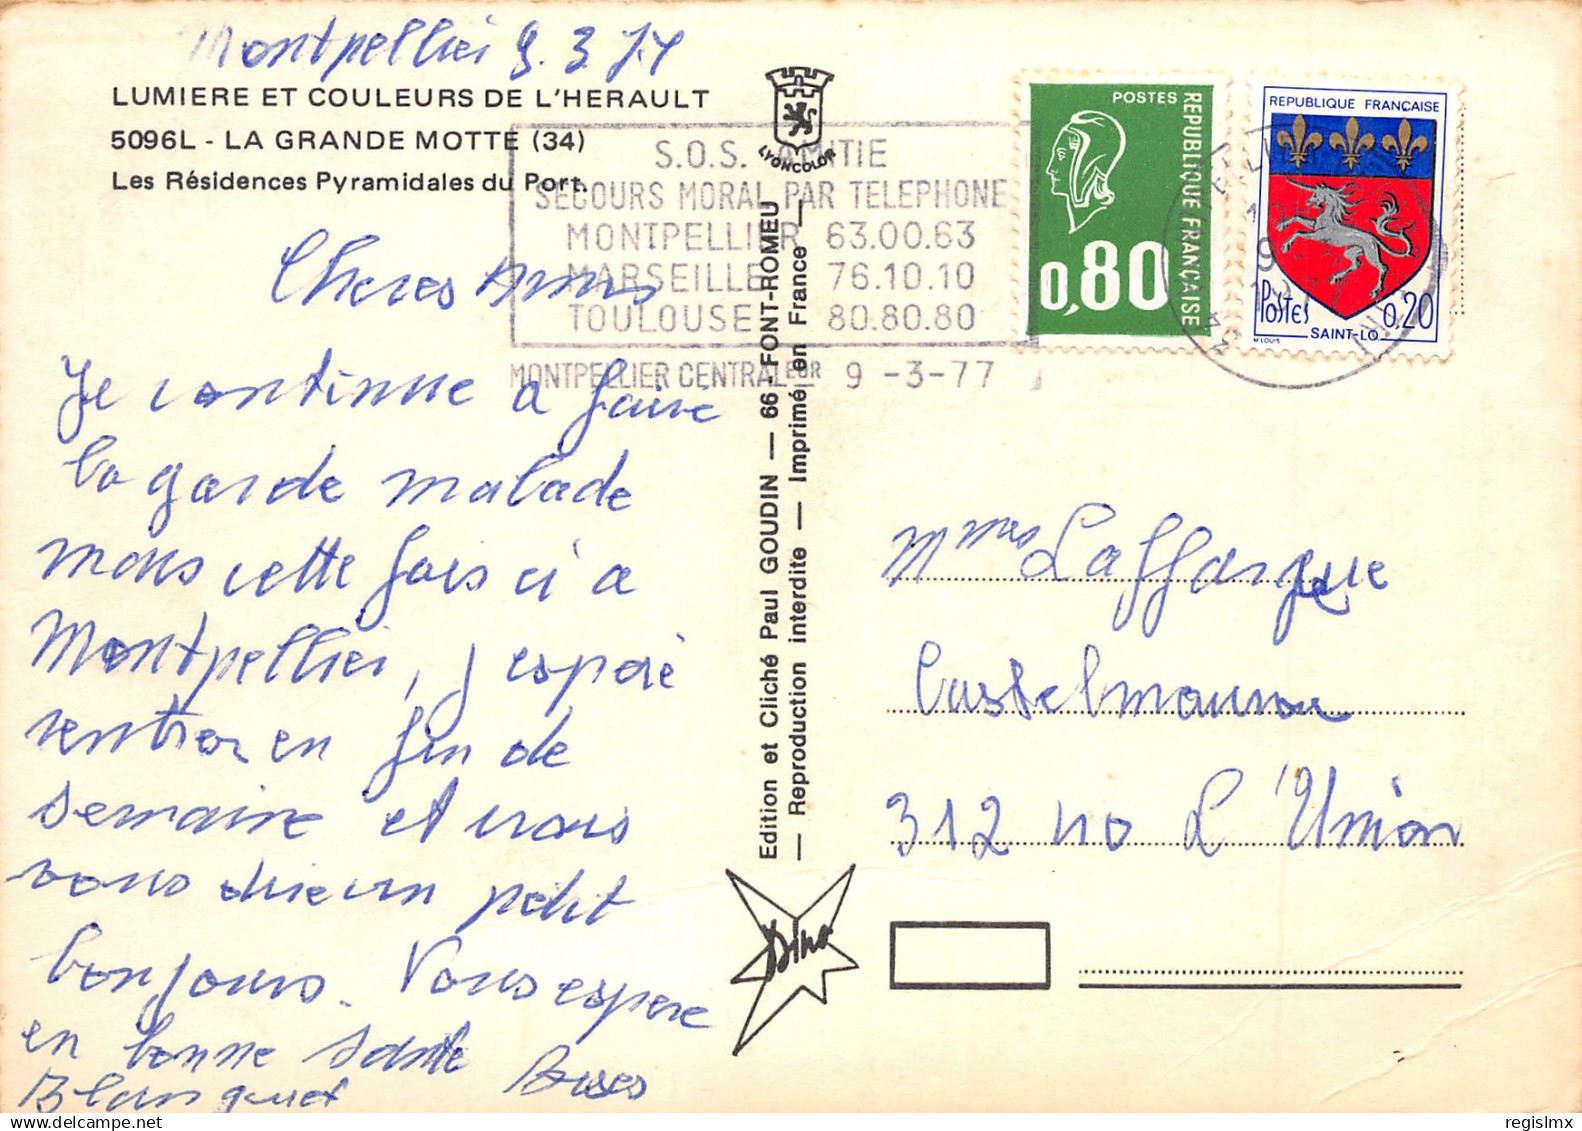 Montpellier 9.3.77
LUMIERE ET COULEURS DE L'HERAULT
5096L - LA GRANDE MOTTE (34)
Les Résidences Pyramidales du Port.
LYONCOLOR
S.O.S. AMITIE
SECOURS MORAL PAR TELEPHONE
MONTPELLIER 63.00.63
MARSEILLE 76.10.10
TOULOUSE 80.80.80
MONTPELLIER CENTRALEUR 9 -3-77
POSTES
REPUBLIQUE FRANÇAISE
0,80
REPUBLIQUE FRANÇAISE
Postes
0,20
SAINT-LO
M LOUIS
Cheres Amies
Je continue a faire
la garde malade
mais cette fois ci a
Montpellier, j espère
rentrer en fin de
semaine et vais
vous dire un petit
bonjour. Vous espere
en bonne sante
Bises
Blanquet
Edition et Cliché Paul GOUDIN — 66 - FONT-ROMEU
— Reproduction interdite — Imprimé en France —
Mmes Laffargue
Castelmaurou
31240 L'Union
Dino
regislmx